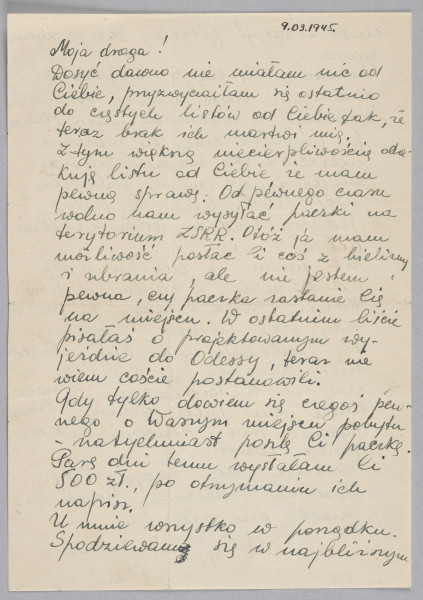 9.03.1945.
Moja droga!
Dosyć dawno nie miałam nic od
Ciebie, przyzwyczaiłam się ostatnio
do częstych listów od Ciebie tak, że
teraz brak ich martwi mię.
Z tym większą niecierpliwością ocze-
kuję listu od Ciebie że mam
pewną sprawę: Od pewnego czasu
wolno nam wysyłać paczki na
terytorium ZSRR. Otóż ja mam
możliwość posłać Ci coś z bielizny
i ubrania, ale nie jestem
pewna, czy paczka zastanie Cię
na miejscu. W ostatnim liście
pisałaś o projektowanym wy-
jeździe do Odessy, teraz nie
wiem coście postanowili.
Gdy tylko dowiem się czegoś pew-
nego o Waszym miejscu pobytu
- natychmiast poszlę Ci paczkę.
Parę dni temu wysłałam Ci
500 zł., po otrzymaniu ich
napisz.
U mnie wszystko w porządku.
Spodziewamy się w najbliższym